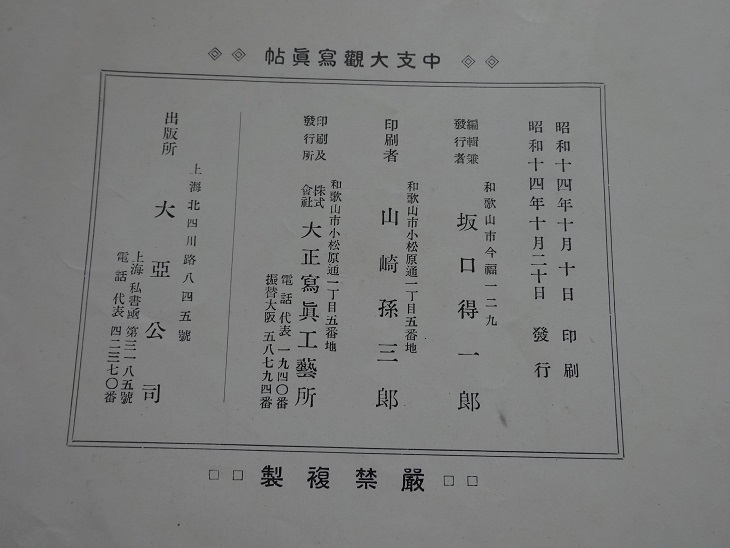 中支大觀寫眞帖
昭和十四年十月十日 印刷
昭和十四年十月二十日 發行
編輯兼
發行者
和歌山市今福一二九
坂口得一郎
印刷者
和歌山市小松原通一丁目五番地
山崎孫三郎
印刷及
發行所
和歌山市小松原通一丁目五番地
株式
會社
大正寫眞工藝所
電話 代表 一九四〇番
振替大阪 五八七九四番
出版所
上海北四川路八四五號
大亞公司
上海 私書函 第三一八五號
電話 代表 四二三七〇番
嚴禁複製